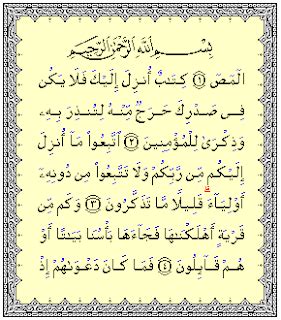 بِسْمِ اللَّهِ الرَّحْمَٰنِ الرَّحِيمِ
الٓمٓصٓ ۝١ كِتَٰبٌ أُنزِلَ إِلَيْكَ فَلَا يَكُن
فِى صَدْرِكَ حَرَجٌ مِّنْهُ لِتُنذِرَ بِهِۦ
وَذِكْرَىٰ لِلْمُؤْمِنِينَ ۝٢ ٱتَّبِعُوا۟ مَآ أُنزِلَ
إِلَيْكُم مِّن رَّبِّكُمْ وَلَا تَتَّبِعُوا۟ مِن دُونِهِۦٓ
أَوْلِيَآءَ ۗ قَلِيلًا مَّا تَذَكَّرُونَ ۝٣ وَكَم مِّن
قَرْيَةٍ أَهْلَكْنَٰهَا فَجَآءَهَا بَأْسُنَا بَيَٰتًا أَوْ
هُمْ قَآئِلُونَ ۝٤ فَمَا كَانَ دَعْوَىٰهُمْ إِذْ